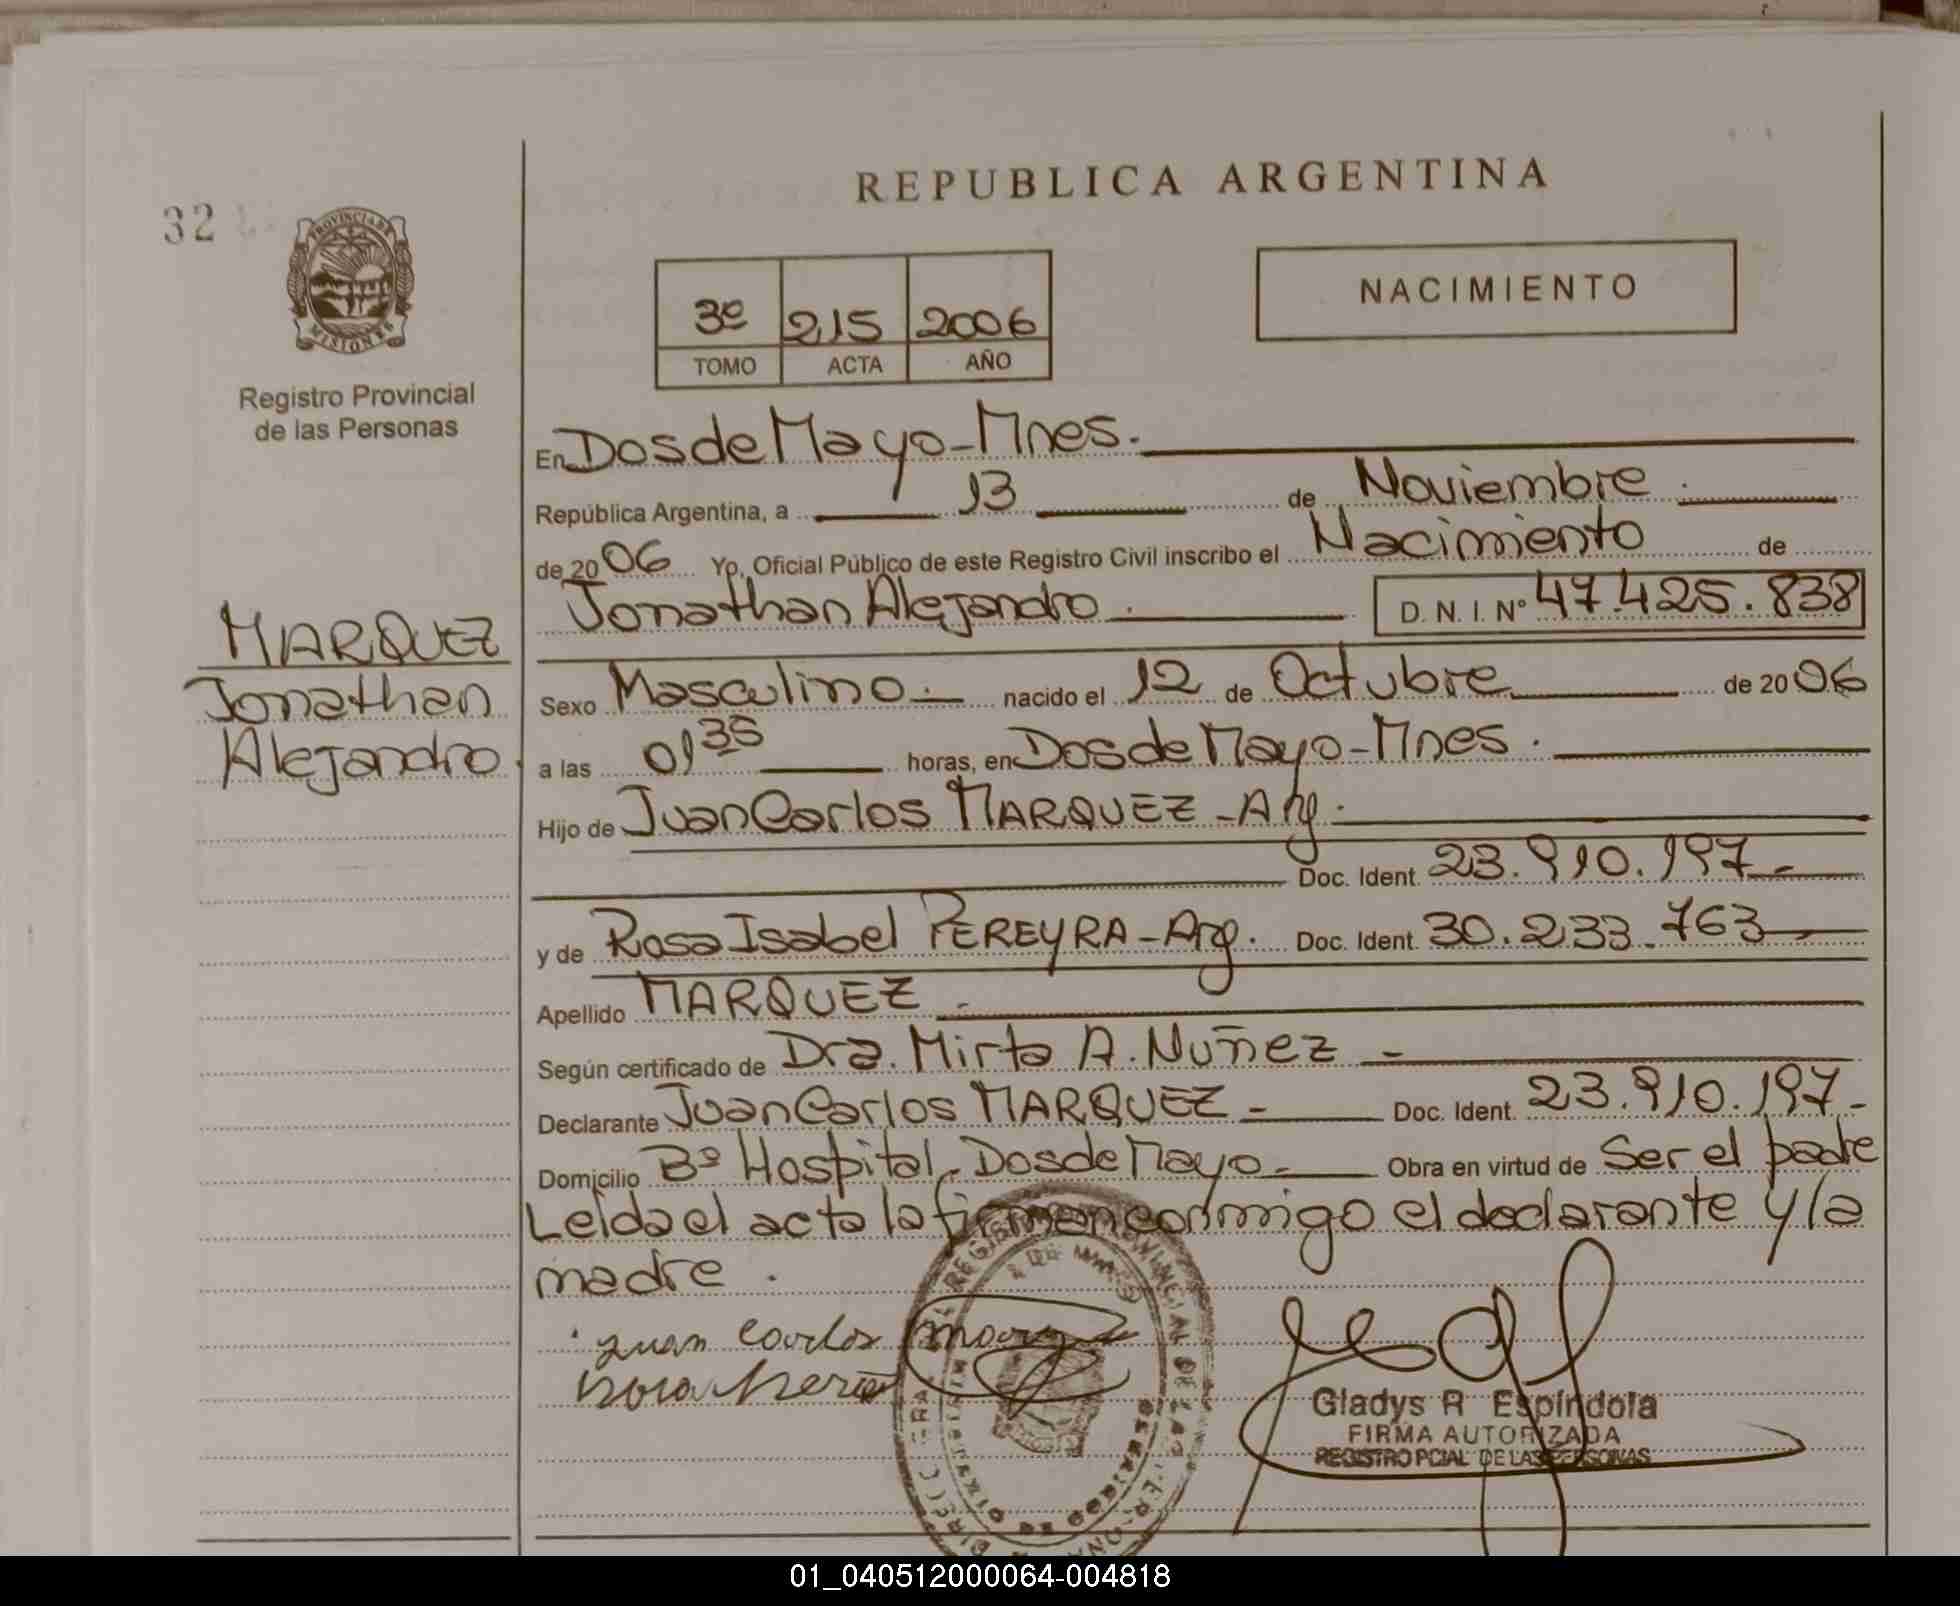 REPUBLICA ARGENTINA
32
PROVINCIA DE
MISIONES
Registro Provincial
de las Personas
3º 215 2006
TOMO ACTA AÑO
NACIMIENTO
En Dos de Mayo - Mnes.
República Argentina, a 13 de Noviembre.
de 2006 Yo, Oficial Público de este Registro Civil inscribo el Nacimiento de
Jonathan Alejandro. D. N. I. Nº 47.425.838
MARQUEZ
Jonathan
Alejandro.
Sexo Masculino.- nacido el 12 de Octubre de 2006
a las 01 35 horas, en Dos de Mayo - Mnes.
Hijo de Juan Carlos MARQUEZ - Arg.
Doc. Ident. 23.910.197.-
y de Rosa Isabel PEREYRA - Arg. Doc. Ident. 30.233.763
Apellido MARQUEZ.-
Según certificado de Dra. Mirta A. Nuñez -
Declarante Juan Carlos MARQUEZ - Doc. Ident. 23.910.197-
Domicilio Bº Hospital, Dos de Mayo - Obra en virtud de Ser el padre
Leída el acta la firman conmigo el declarante y la
madre.
Juan Carlos
Gladys R Espíndola
FIRMA AUTORIZADA
REGISTRO PCIAL DE LAS PERSONAS
01_040512000064-004818